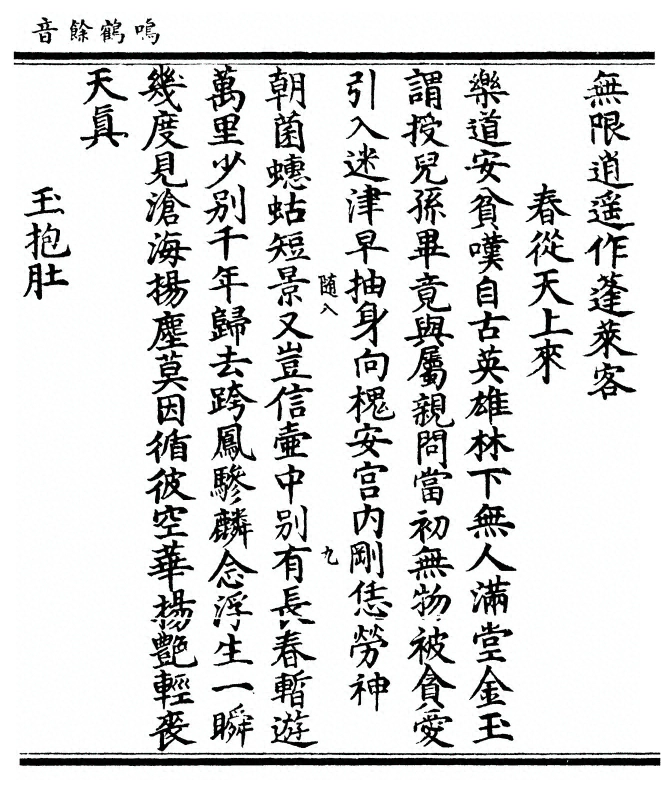 鳴鶴餘音
無限逍遥作蓬萊客
春從天上來
樂道安貧嘆自古英雄林下無人滿堂金玉
謂授兒孫畢竟與屬親問當初無物被貪愛
引入迷津早抽身向槐安宫内剛恁勞神
随入
九
朝菌蟪蛄短景又豈信壷中别有長春暫遊
萬里少别千年歸去跨鳳驂麟念浮生一瞬
幾度見滄海揚塵莫因循彼空華揚艷輕喪
天眞
玉抱肚